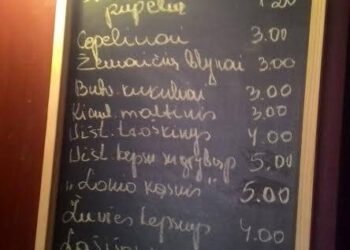 pupelių 1.20
Cepelinai 3.00
Žemaičių blynai 3.00
Bulv. kukuliai 3.00
Kiaul. maltinis 3.00
Višt. troškinys 4.00
Višt. kepsn. su grybais 5.00
„Lonio kąsnis" 5.00
Žuvies kepsnys 4.00